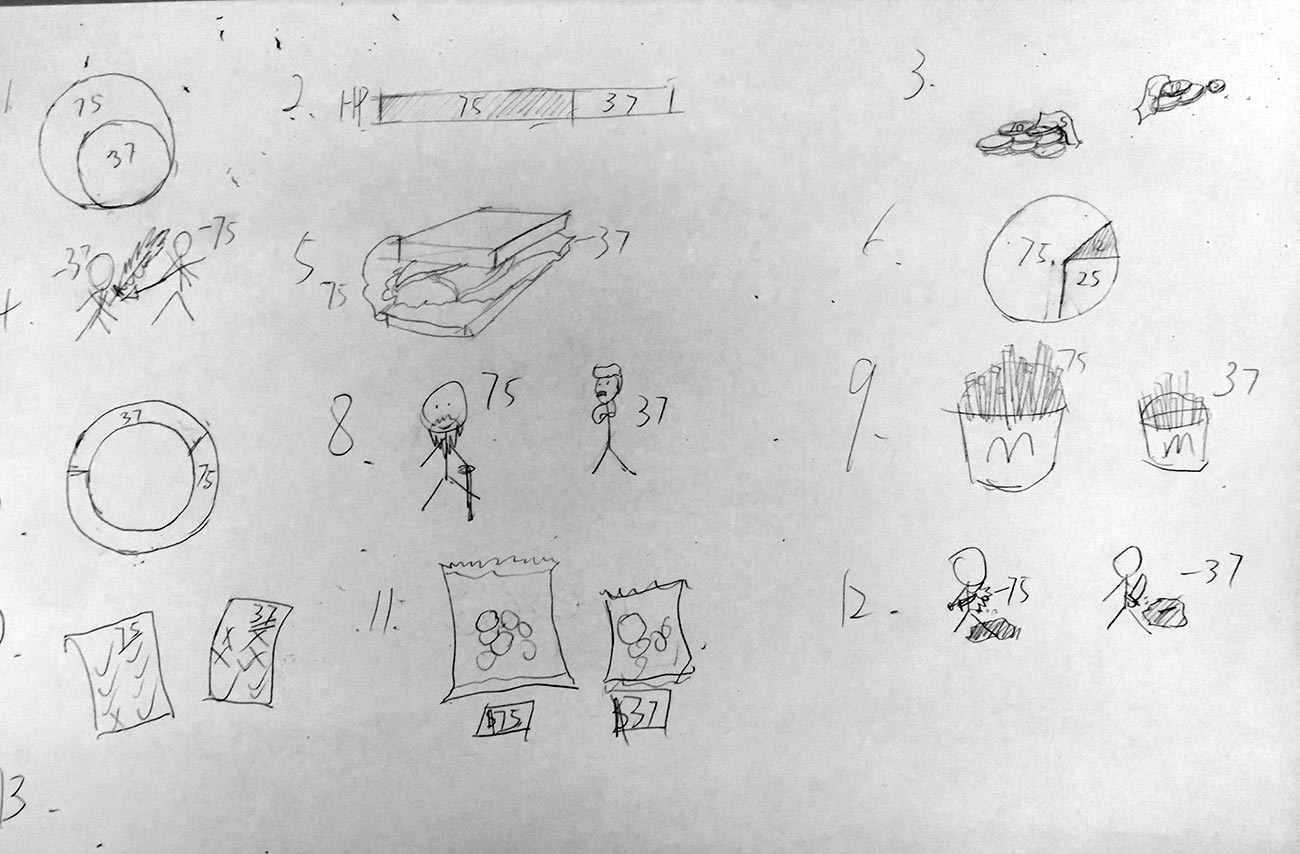 1
75
37
2.
HP 75 37
3.
10 5
4.
-37
-75
5
75
-37
6.
75.
12
25
37
75
8.
75
37
9.
75
m
37
m
75
37
11.
$75
$37
12.
-75
-37
13.